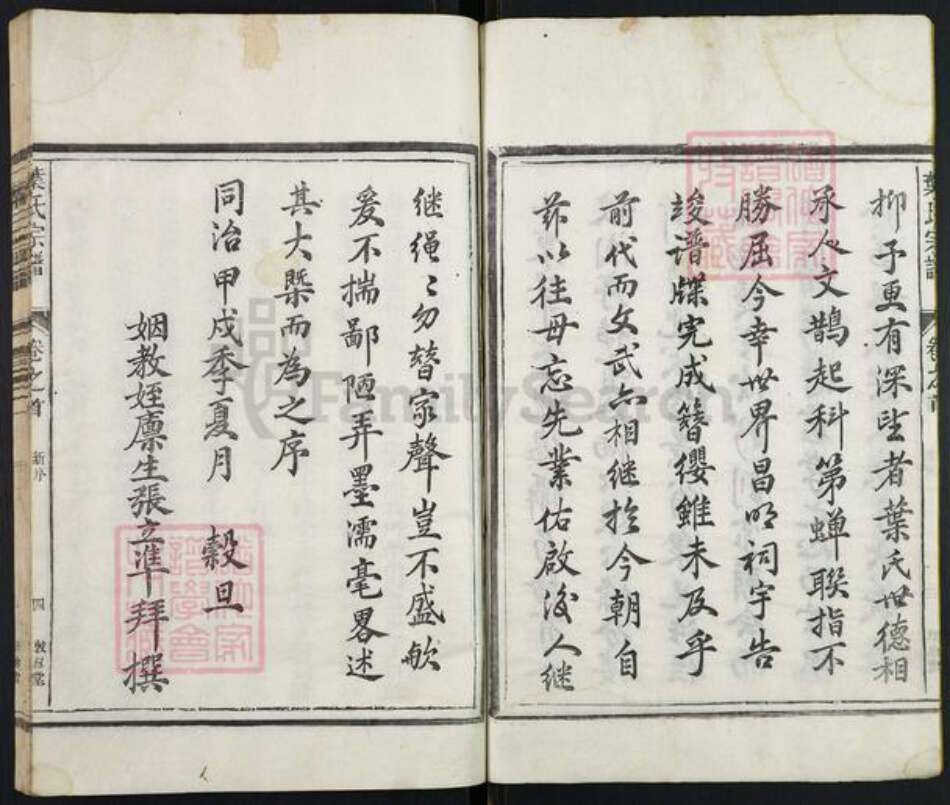 抑予更有深望者葉氏世德相
承人文鵲起科第蟬聯指不
勝屈今幸世界昌明祠宇告
竣谱牒完成簪纓雖未及乎
前代而文武亦相继於今朝自
兹以往毋忘先業佑啟後人继
葉氏宗譜
卷之首
继绳〻勿替家聲豈不盛欤
爰不揣鄙陋弄墨濡毫畧述
其大槩而為之序
同治甲戌季夏月 穀旦
姻教姪廪生張立準拜撰
葉氏宗譜
卷之首
四
FamilySearch